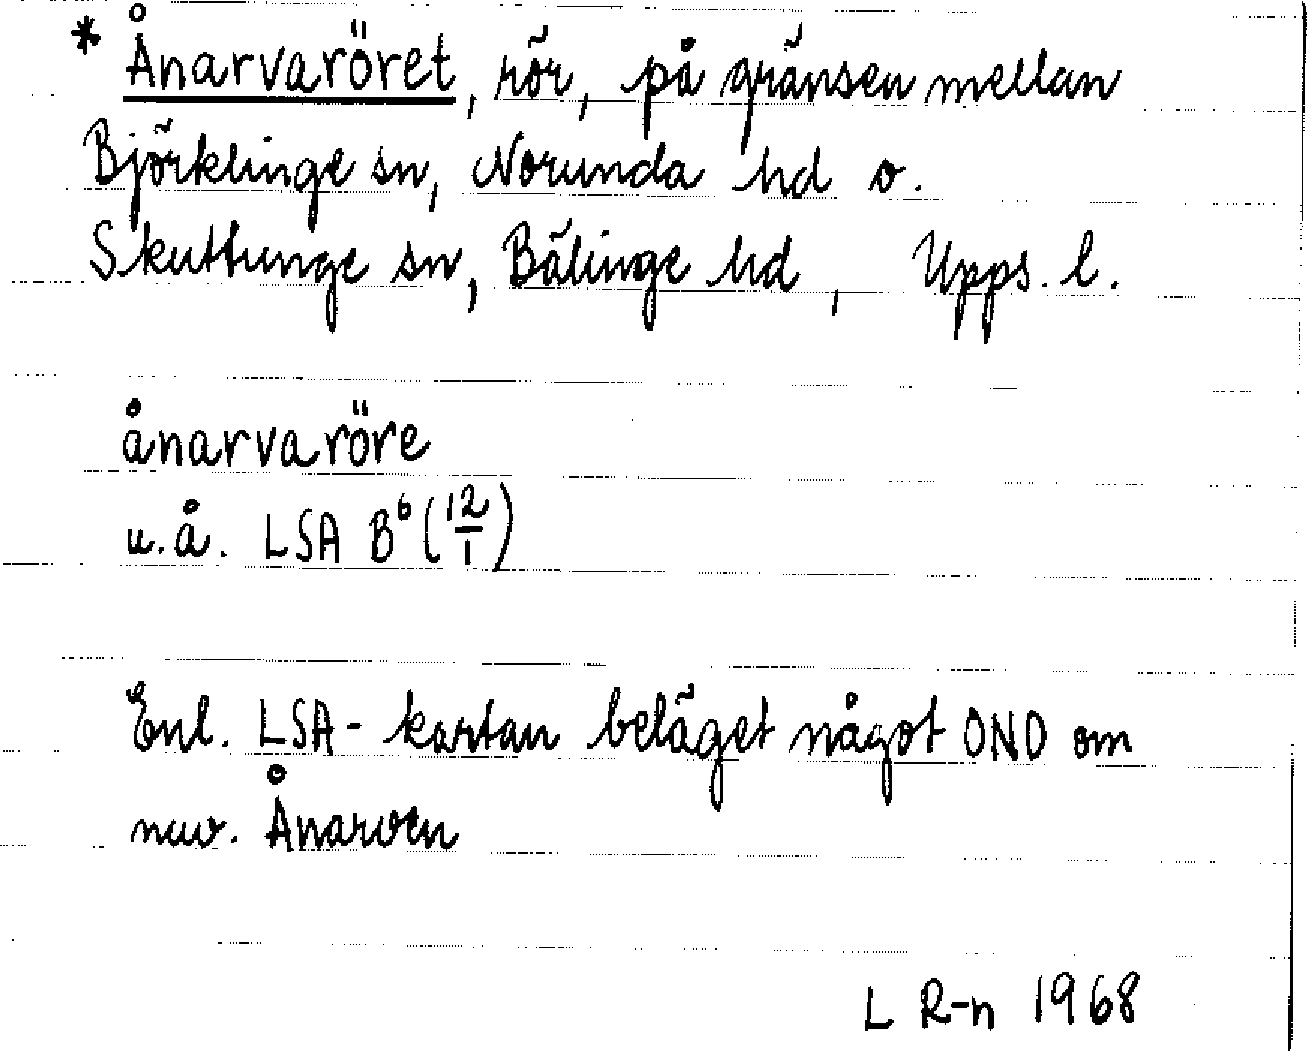 * Ånarvaröret, rör, på gränsen mellan
Björklinge sn, Norunda hd o.
Skuttunge sn, Bälinge hd, Upps. l.
ånarvaröre
u.å. LSA B⁶ (12/1)
Enl. LSA-kartan beläget något ONO om
nuv. Ånarven
L R-n 1968